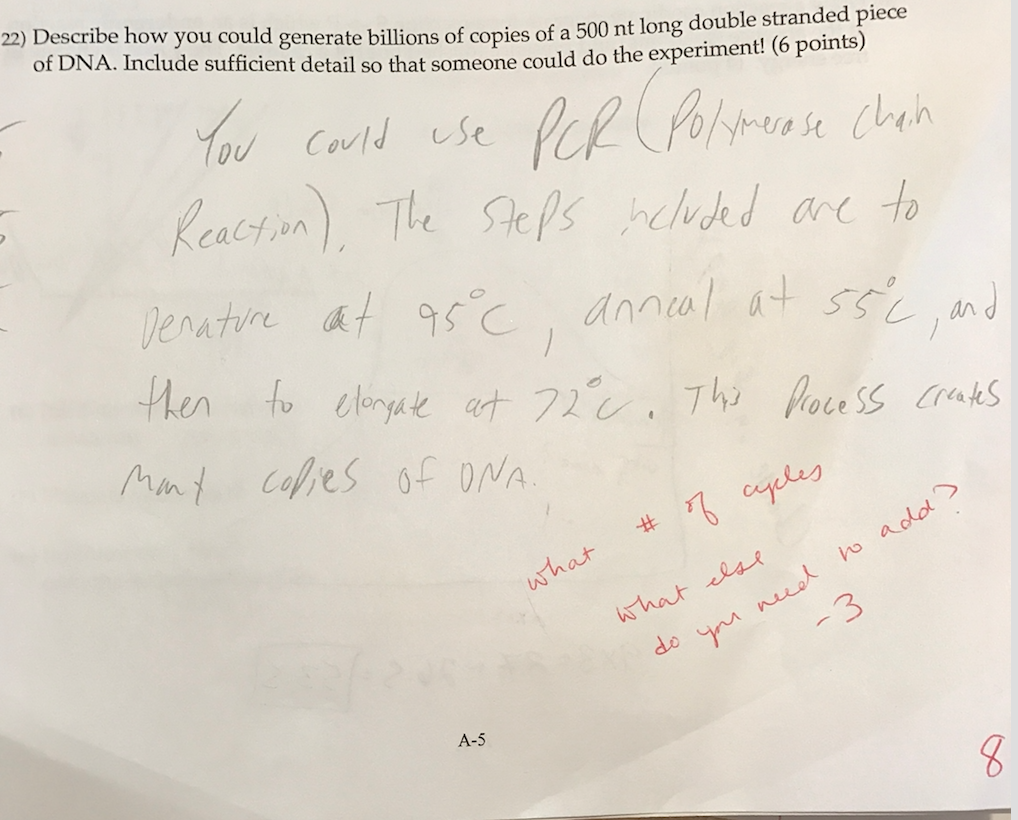 22) Describe how you could generate billions of copies of a 500 nt long double stranded piece
of DNA. Include sufficient detail so that someone could do the experiment! (6 points)
You could use PCR (Polymerase Chain
Reaction). The steps included are to
Denature at 95°C, anneal at 55°C, and
then to elongate at 72°C. This Process creates
Many copies of DNA.
what # of cycles
what else
do you need to add?
-3
A-5
8